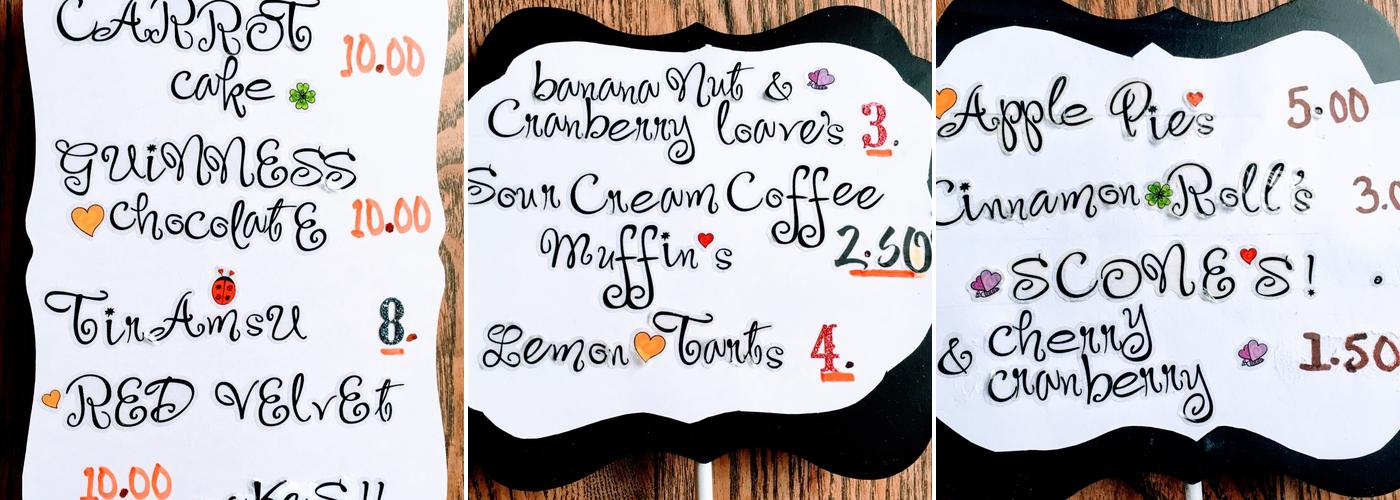 CARROT 10.00
cake
GUiNNESS
chocolatE 10.00
TirAmsU 8.
RED VElvEt
10.00
banana Nut &
Cranberry loave's 3.
Sour Cream Coffee
Muffin's 2.50
Lemon Tarts 4.
Apple Pie's 5.00
Cinnamon Roll's 3.0
SCONE'S!
& cherry 1.50
cranberry